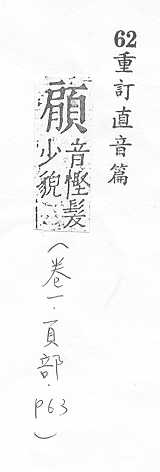 62重訂直音篇
顅
音慳髮
少貌
(卷一·頁部·p63)